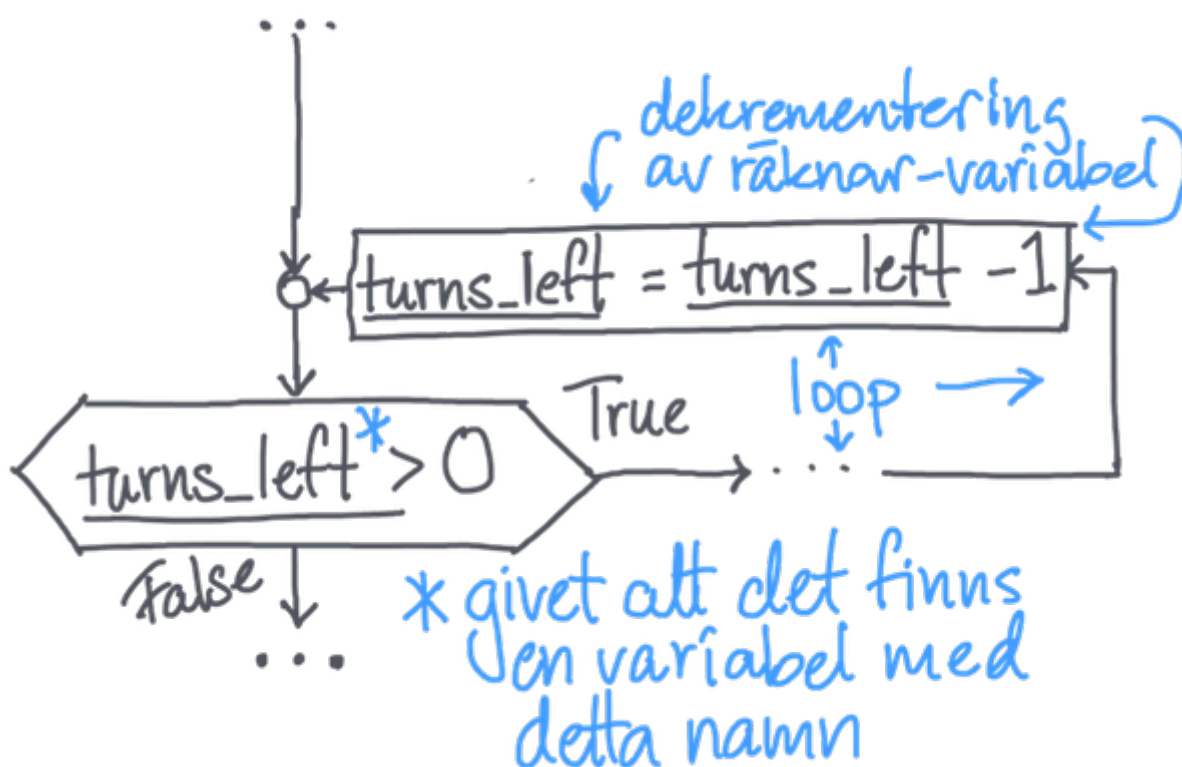 ...
dekrementering
av räknar-variabel
turns_left = turns_left - 1
loop
True
turns_left* > 0
...
False
* givet att det finns
en variabel med
detta namn
...